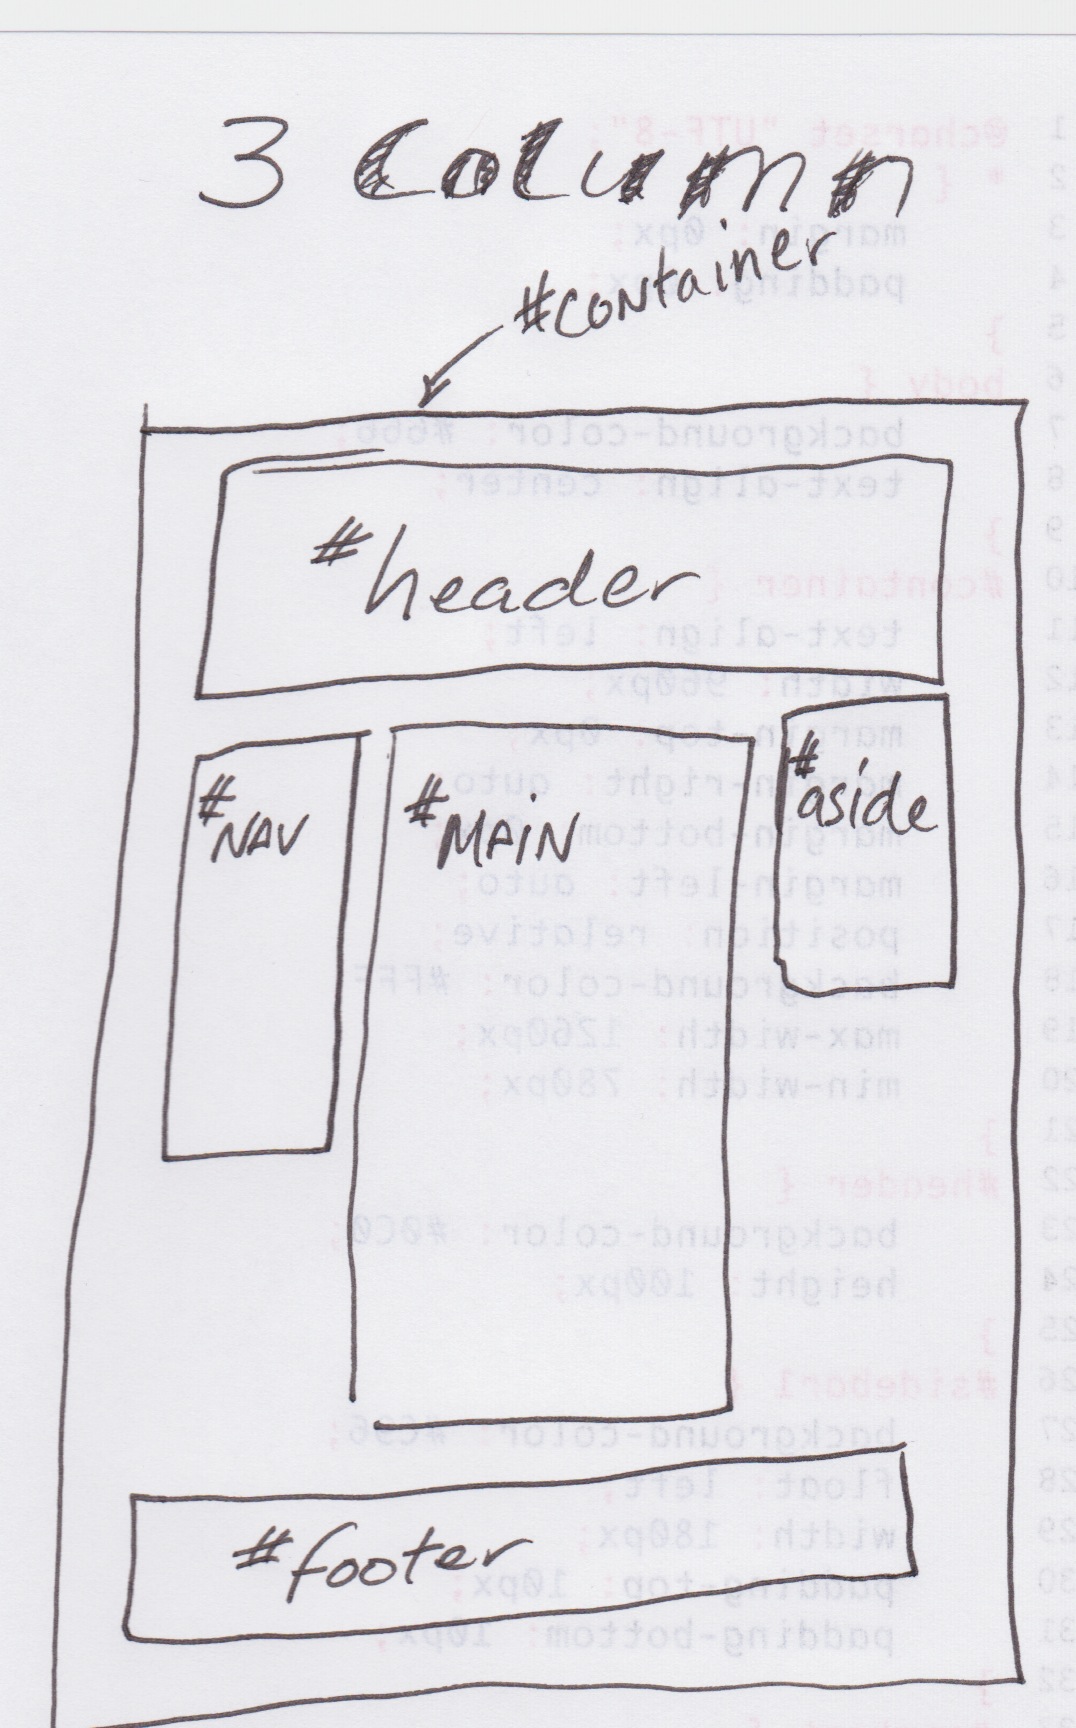 3 Column
#container
#header
#NAV
#MAiN
#aside
#footer
1 @charset "UTF-8";
2 * {
3 margin: 0px;
4 padding: 0px;
5 }
6 body {
7 background-color: #666;
8 text-align: center;
9 }
10 #container {
11 text-align: left;
12 width: 960px;
13 margin-top: 0px;
14 margin-right: auto;
15 margin-bottom: 0px;
16 margin-left: auto;
17 position: relative;
18 background-color: #FFF
19 max-width: 1260px;
20 min-width: 780px;
21 }
22 #header {
23 background-color: #0C0;
24 height: 100px;
25 }
26 #sidebar1 {
27 background-color: #C96;
28 float: left;
29 width: 180px;
30 padding-top: 10px;
31 padding-bottom: 10px;
32 }